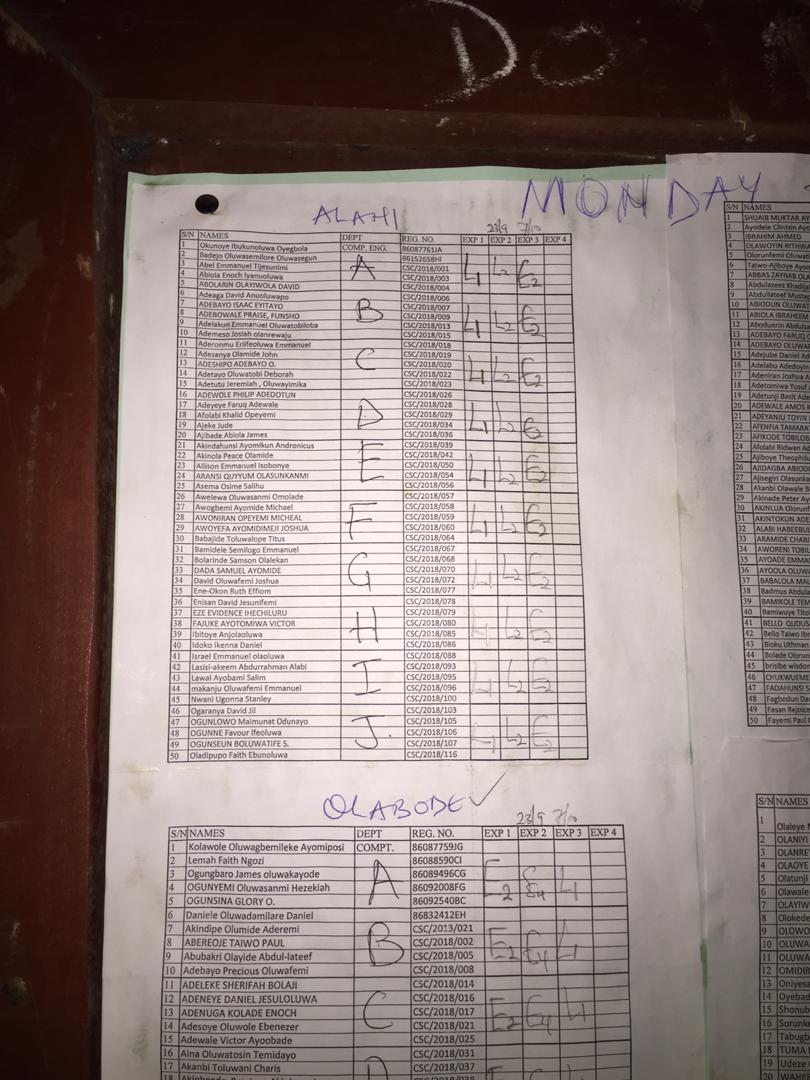 DO
MONDAY
ALAHI
23/9 7/10
S/N NAMES DEPT REG. NO. EXP 1 EXP 2 EXP 3 EXP 4
1 Okunoye Ibukunoluwa Oyegbola COMP. ENG. 86087761JA
2 Badejo Oluwasemilore Oluwasegun 86152658HI
3 Abel Emmanuel Tijesunimi A CSC/2018/001 L1 L2 E2
4 Abiola Enoch Iyanuoluwa CSC/2018/003
5 ABOLARIN OLAYIWOLA DAVID CSC/2018/004
6 Adeaga David Anuoluwapo CSC/2018/006
7 ADEBAYO ISAAC EYITAYO CSC/2018/007
8 ADEBOWALE PRAISE, FUNSHO B CSC/2018/009 L1 L2 E2
9 Adelakun Emmanuel Oluwatobiloba CSC/2018/013
10 Ademeso Josiah olanrewaju CSC/2018/015
11 Aderonmu Eriifeoluwa Emmanuel CSC/2018/018
12 Adesanya Olamide John CSC/2018/019
13 ADESHIPO ADEBAYO O. C CSC/2018/020 L1 L2 E2
14 Adetayo Oluwatobi Deborah CSC/2018/022
15 Adetutu Jeremiah , Oluwayimika CSC/2018/023
16 ADEWOLE PHILIP ADEDOTUN CSC/2018/026
17 Adeyeye Faruq Adewale CSC/2018/028
18 Afolabi Khalid Opeyemi D CSC/2018/029 L1 L2
19 Ajeke Jude CSC/2018/034
20 Ajibade Abiola James CSC/2018/036
21 Akindahunsi Ayomikun Andronicus CSC/2018/039
22 Akinola Peace Olamide CSC/2018/042
23 Allison Emmanuel Isobonye E CSC/2018/050 L1 L2 E2
24 ARANSI QUYYUM OLASUNKANMI CSC/2018/054
25 Asema Osime Salihu CSC/2018/056
26 Awelewa Oluwasanmi Omolade CSC/2018/057
27 Awogbemi Ayomide Michael CSC/2018/058
28 AWONIRAN OPEYEMI MICHEAL F CSC/2018/059 L1 L2 E2
29 AWOYEFA AYOMIDIMEJI JOSHUA CSC/2018/060
30 Babajide Toluwalope Titus CSC/2018/064
31 Bamidele Semilogo Emmanuel CSC/2018/067
32 Bolarinde Samson Olalekan CSC/2018/068
33 DADA SAMUEL AYOMIDE G CSC/2018/070 L1 L2 E2
34 David Oluwafemi Joshua CSC/2018/072
35 Ene-Okon Ruth Effiom CSC/2018/077
36 Enisan David Jesunifemi CSC/2018/078
37 EZE EVIDENCE IHECHILURU CSC/2018/079
38 FAJUKE AYOTOMIWA VICTOR H CSC/2018/080 L1 L2 E2
39 Ibitoye Anjolaoluwa CSC/2018/085
40 Idoko Ikenna Daniel CSC/2018/086
41 Israel Emmanuel olaoluwa CSC/2018/088
42 Lasisi-akeem Abdurrahman Alabi CSC/2018/093
43 Lawal Ayobami Salim I CSC/2018/095 L1 L2 E2
44 makanju Oluwafemi Emmanuel CSC/2018/096
45 Nwani Ugonna Stanley CSC/2018/100
46 Ogaranya David Jil CSC/2018/103
47 OGUNLOWO Maimunat Odunayo CSC/2018/105
48 OGUNNE Favour Ifeoluwa J. CSC/2018/106 L1 L2 E2
49 OGUNSEUN BOLUWATIFE S. CSC/2018/107
50 Oladipupo Faith Ebunoluwa CSC/2018/116
OLABODE
23/9 7/10
S/N NAMES DEPT REG. NO. EXP 1 EXP 2 EXP 3 EXP 4
1 Kolawole Oluwagbemileke Ayomiposi COMPT. 86087759JG
2 Lemah Faith Ngozi 86088590CI
3 Ogungbaro James oluwakayode A 86089496CG E2 E4 L1
4 OGUNYEMI Oluwasanmi Hezekiah 86092008FG
5 OGUNSINA GLORY O. 86092540BC
6 Daniele Oluwadamilare Daniel 86832412EH
7 Akindipe Olumide Aderemi CSC/2013/021
8 ABEREOJE TAIWO PAUL B CSC/2018/002 E2 E4 L1
9 Abubakri Olayide Abdul-lateef CSC/2018/005
10 Adebayo Precious Oluwafemi CSC/2018/008
11 ADELEKE SHERIFAH BOLAJI CSC/2018/014
12 ADENEYE DANIEL JESULOLUWA CSC/2018/016
13 ADENUGA KOLADE ENOCH C CSC/2018/017 E2 E4 L1
14 Adesoye Oluwole Ebenezer CSC/2018/021
15 Adewale Victor Ayoobade CSC/2018/025
16 Aina Oluwatosin Temidayo CSC/2018/031
17 Akanbi Toluwani Charis CSC/2018/037
S/N NAMES
1 SHUAIB MUKTAR AY
2 Ayodele Clinton Ayo
3 IBRAHIM AHMED
4 OLAWOYIN RITHWA
5 Olorunfemi Oluwati
6 Taiwo-Ajiboye Ayom
7 ABBAS ZAYNAB OLA
8 Abdulateez Khadijat
9 Abdullateef Mustap
10 ABIODUN OLUWAT
11 ABIOLA IBRAHEEM
12 Abodunrin Abdulra
13 ADEBAYO FARUQ O
14 ADEBAYO OLUWAF
15 Adejube Daniel Ade
16 Adelabu Adedoyin
17 Adeniran Joshua A
18 Adetomiwa Yusuf
19 Adetunji Basit Ade
20 ADEWALE AMOS
21 ADEYANJU TOYIN
22 AFENFIA TAMARA
23 AFIKODE TOBILOB
24 Afolabi Ridwan Ad
25 Ajiboye Theophilu
26 AJIDAGBA ABIOD
27 Ajisegiri Olasunka
28 Akanbi Olawale B
29 Akinade Peter Ay
30 AKINLUA Olorunf
31 AKINTOKUN ADE
32 ALABI HABEEBUL
33 ARAMIDE CHARI
34 AWORENI TOBIL
35 AYOADE EMMA
36 AYOOLA OLUW
37 BABALOLA MA
38 Badmus Abdula
39 BAMIKOLE TEM
40 Bamiwuye Tito
41 BELLO QUDUS
42 Bello Taiwo Ibr
43 Bioku Uthman
44 Bolade Olorun
45 brisibe wisdom
46 CHUKWUEME
47 FADAHUNSI
48 Fagbodun Da
49 Fasan Rejoice
50 Fayemi Paul
S/N NAMES
1 Olaleye
2 OLANIYI
3 OLANRE
4 OLAOYE
5 Olatunji
6 Olawale
7 OLAYIW
8 Olokede
9 OLOWO
10 OLUWA
11 OLUWA
12 OMIDIR
13 Oniyesa
14 Oyebad
15 Shonub
16 Sorunk
17 Tabugb
18 TUMA
19 Udeze